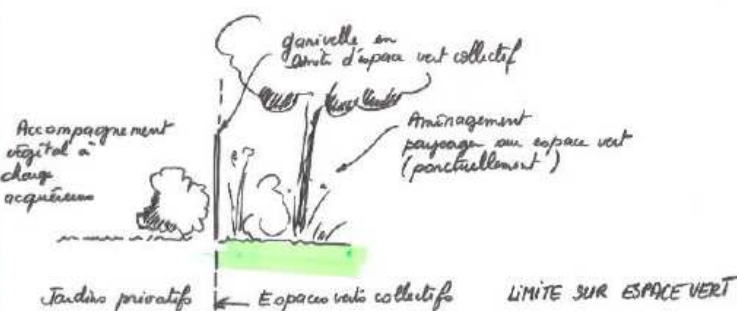 ganivelle en
limite d'espace vert collectif
Accompagnement
végétal à
charge
acquéreurs
Aménagement
paysager sur espace vert
(ponctuellement)
Jardins privatifs
Espaces verts collectifs
LIMITE SUR ESPACE VERT